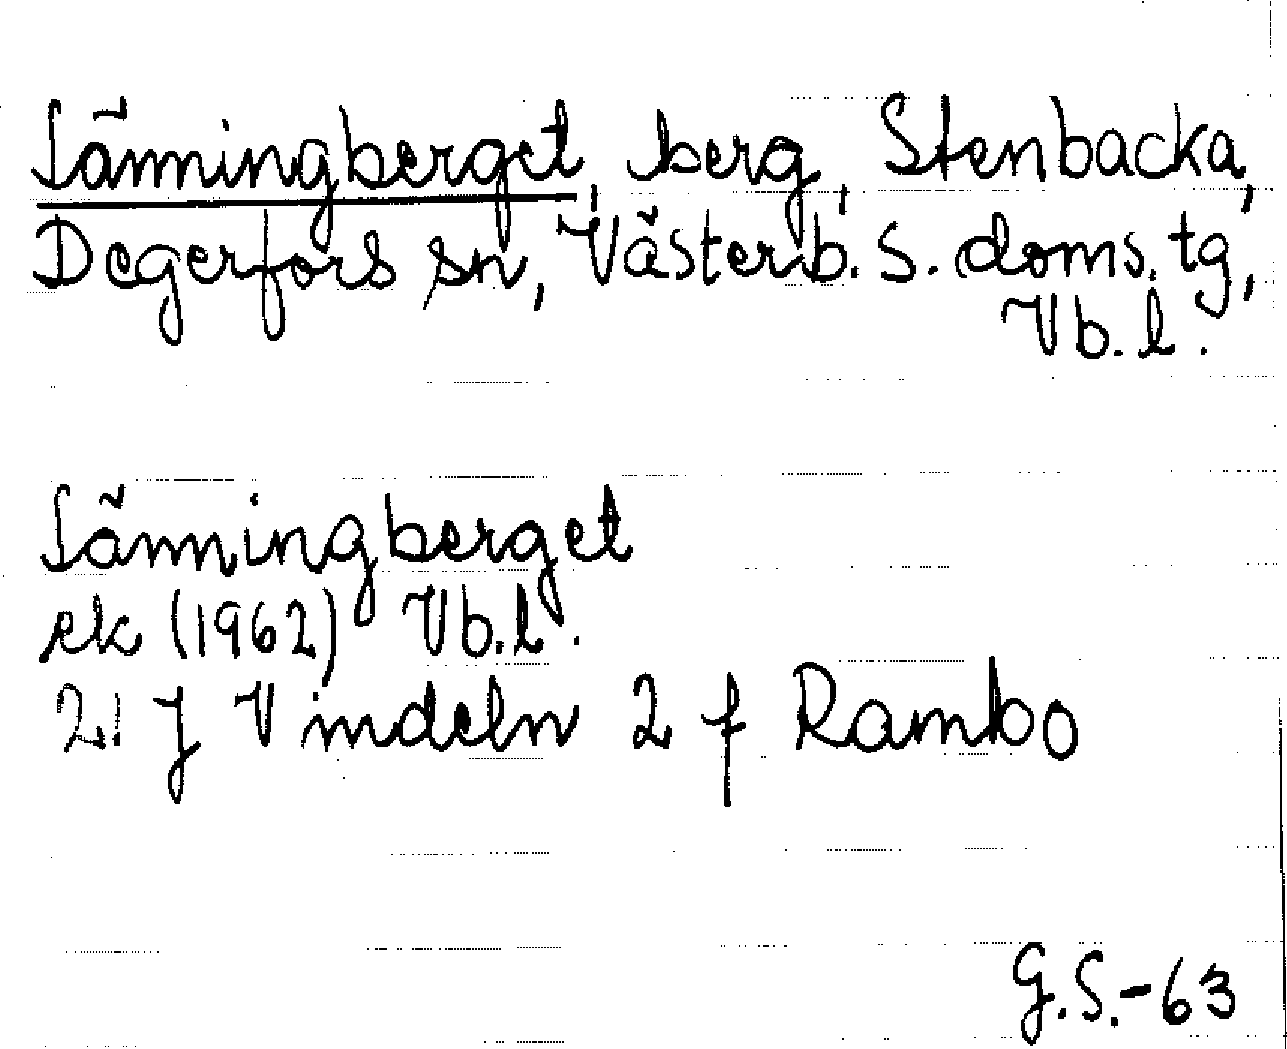 Länningberget, berg, Stenbacka,
Degerfors sn, Västerb. s. doms. tg,
Vb. l.
Länningberget
ek (1962) Vb. l.
21 J Vindeln 2 f Rambo
G.S.-63